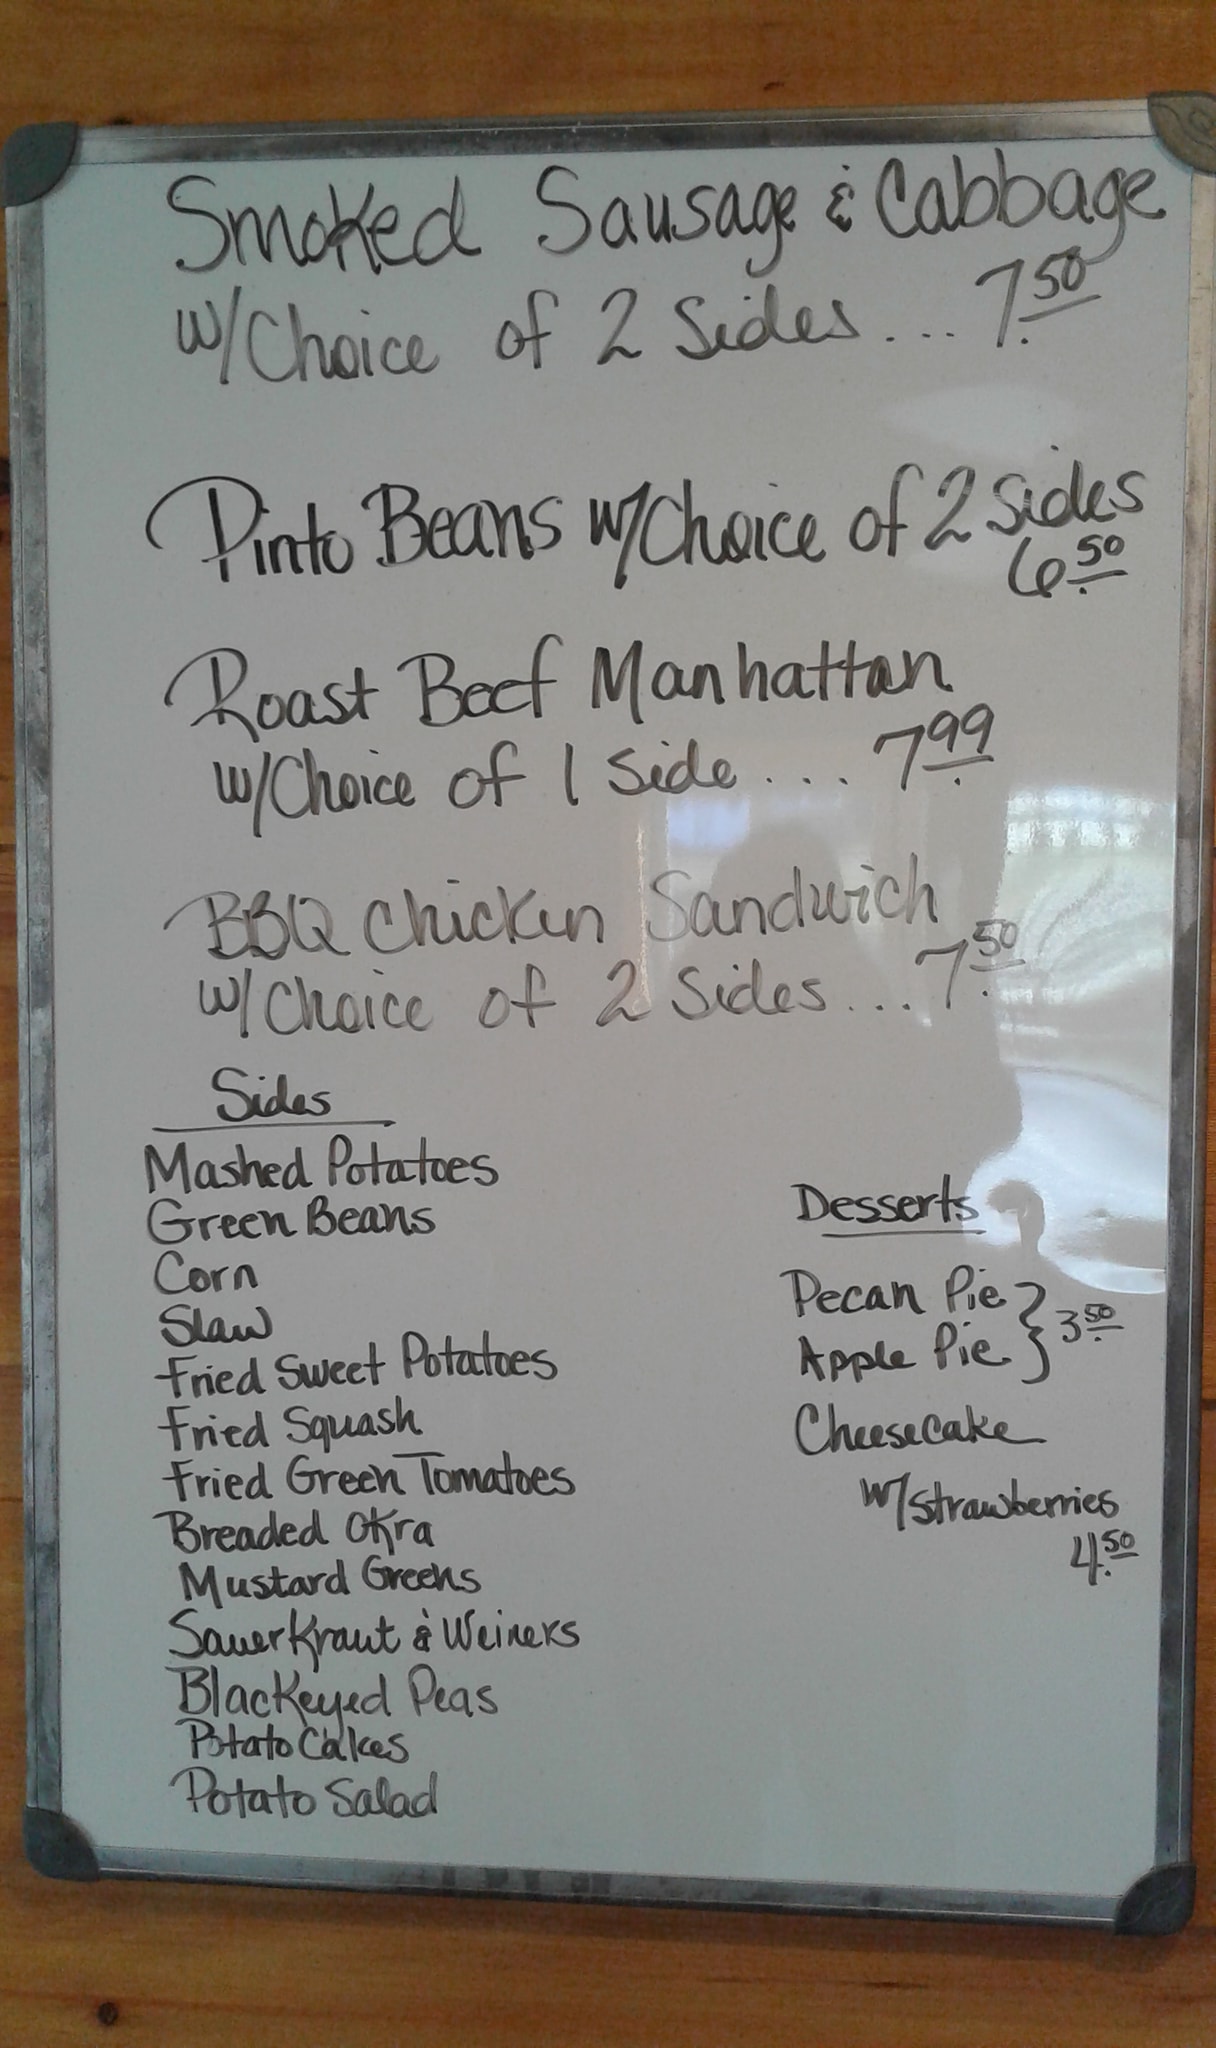 Smoked Sausage & Cabbage
w/Choice of 2 Sides... 7.50
Pinto Beans w/Choice of 2 Sides
6.50
Roast Beef Manhattan
w/Choice of 1 Side.... 7.99
BBQ Chicken Sandwich
w/Choice of 2 Sides... 7.50
Sides
Mashed Potatoes
Green Beans
Corn
Slaw
Fried Sweet Potatoes
Fried Squash
Fried Green Tomatoes
Breaded Okra
Mustard Greens
Sauerkraut & Weiners
Blackeyed Peas
Potato Cakes
Potato Salad
Desserts
Pecan Pie
Apple Pie } 3.50
Cheesecake
w/strawberries
4.50